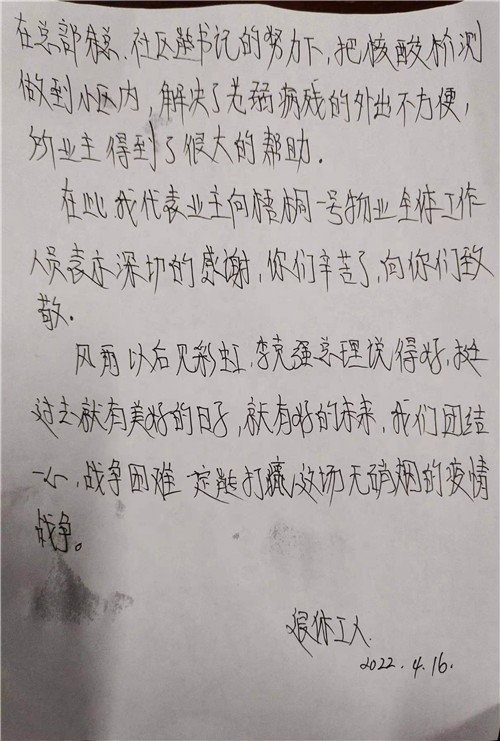 在总部徐总.社区赵书记的努力下,把核酸检测
做到小区内,解决了老弱病残的外出不方便,
为业主得到了很大的帮助.
在此.我代表业主向梧桐一号物业全体工作
人员表示深切的感谢,你们辛苦了,向你们致
敬.
风雨以后见彩虹,李克强总理说得好,挺
过去就有美好的日子,就有好的未来,我们团结
一心,战争困难一定能打赢这场无硝烟的疫情
战争。
退休工人.
2022.4.16.